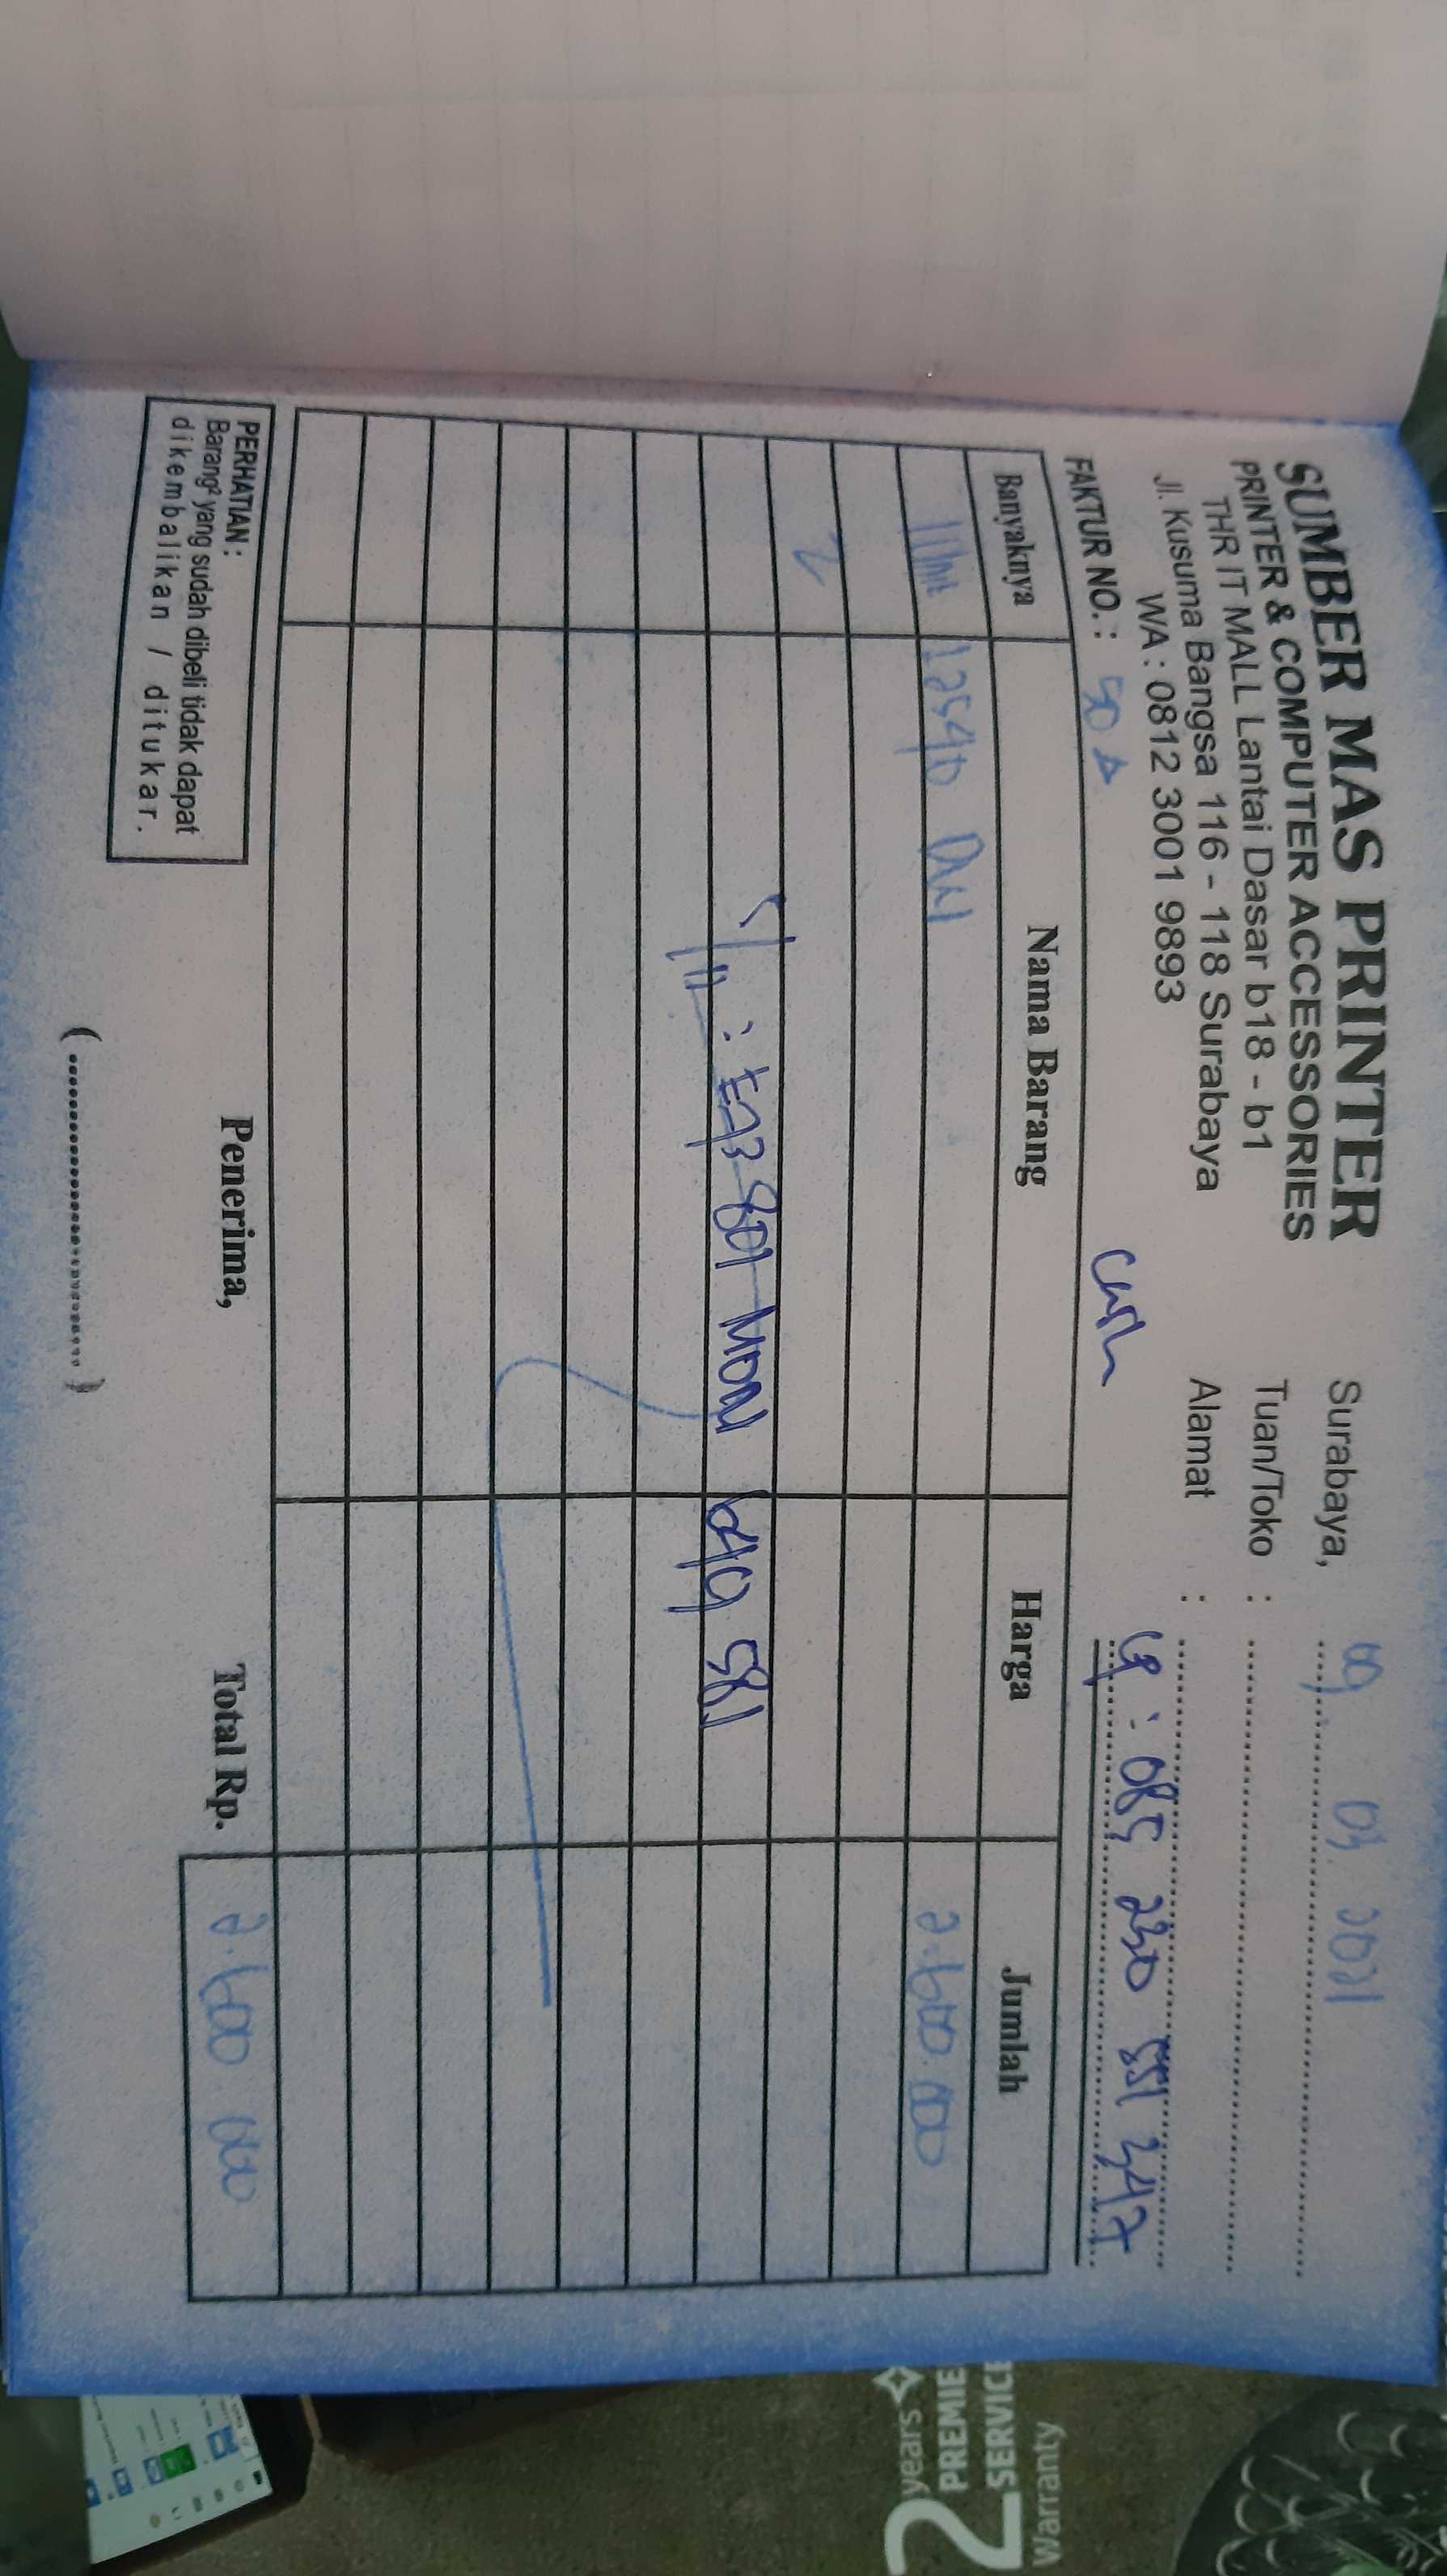 SUMBER MAS PRINTER
PRINTER & COMPUTER ACCESSORIES
THR IT MALL Lantai Dasar b18 - b1
Jl. Kusuma Bangsa 116 - 118 Surabaya
WA : 0812 3001 9893
Surabaya, 09 03 2021
Tuan/Toko :
Alamat :
CP : 085 230 551 347
FAKTUR NO. : 50 A
Cash
Banyaknya Nama Barang Harga Jumlah
1 Unit 2.600.000
PERHATIAN :
Barang² yang sudah dibeli tidak dapat
dikembalikan / ditukar.
Penerima,
Total Rp. 2.600 000
(....................)
2 years
PREMIE
SERVICE
Warranty